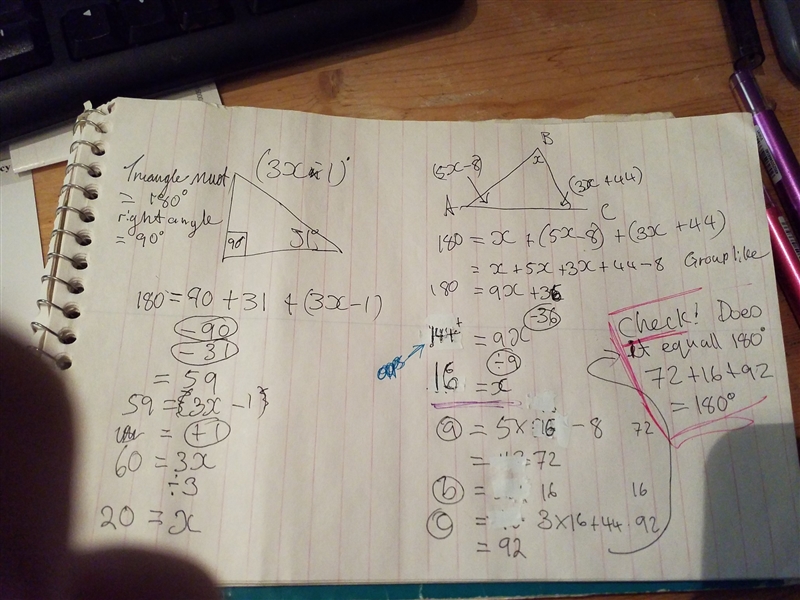 Triangle must
= 180°
right angle
= 90°
(3x-1)°
90°
31°
180 = 90 + 31 + (3x-1)
-90
-31
= 59
59 = {3x-1}
= +1
60 = 3x
÷3
20 = x
B
x
(5x-8)
(3x+44)
A
C
180 = x + (5x-8) + (3x+44)
= x+5x+3x+44-8 Group like
180 = 9x+36
-36
144 = 9x
oops
÷9
16 = x
a = 5x16 - 8 72
= 72
b = 16 16
c = 3x16+44 92
= 92
Check! Does
it equall 180°
72+16+92
= 180°